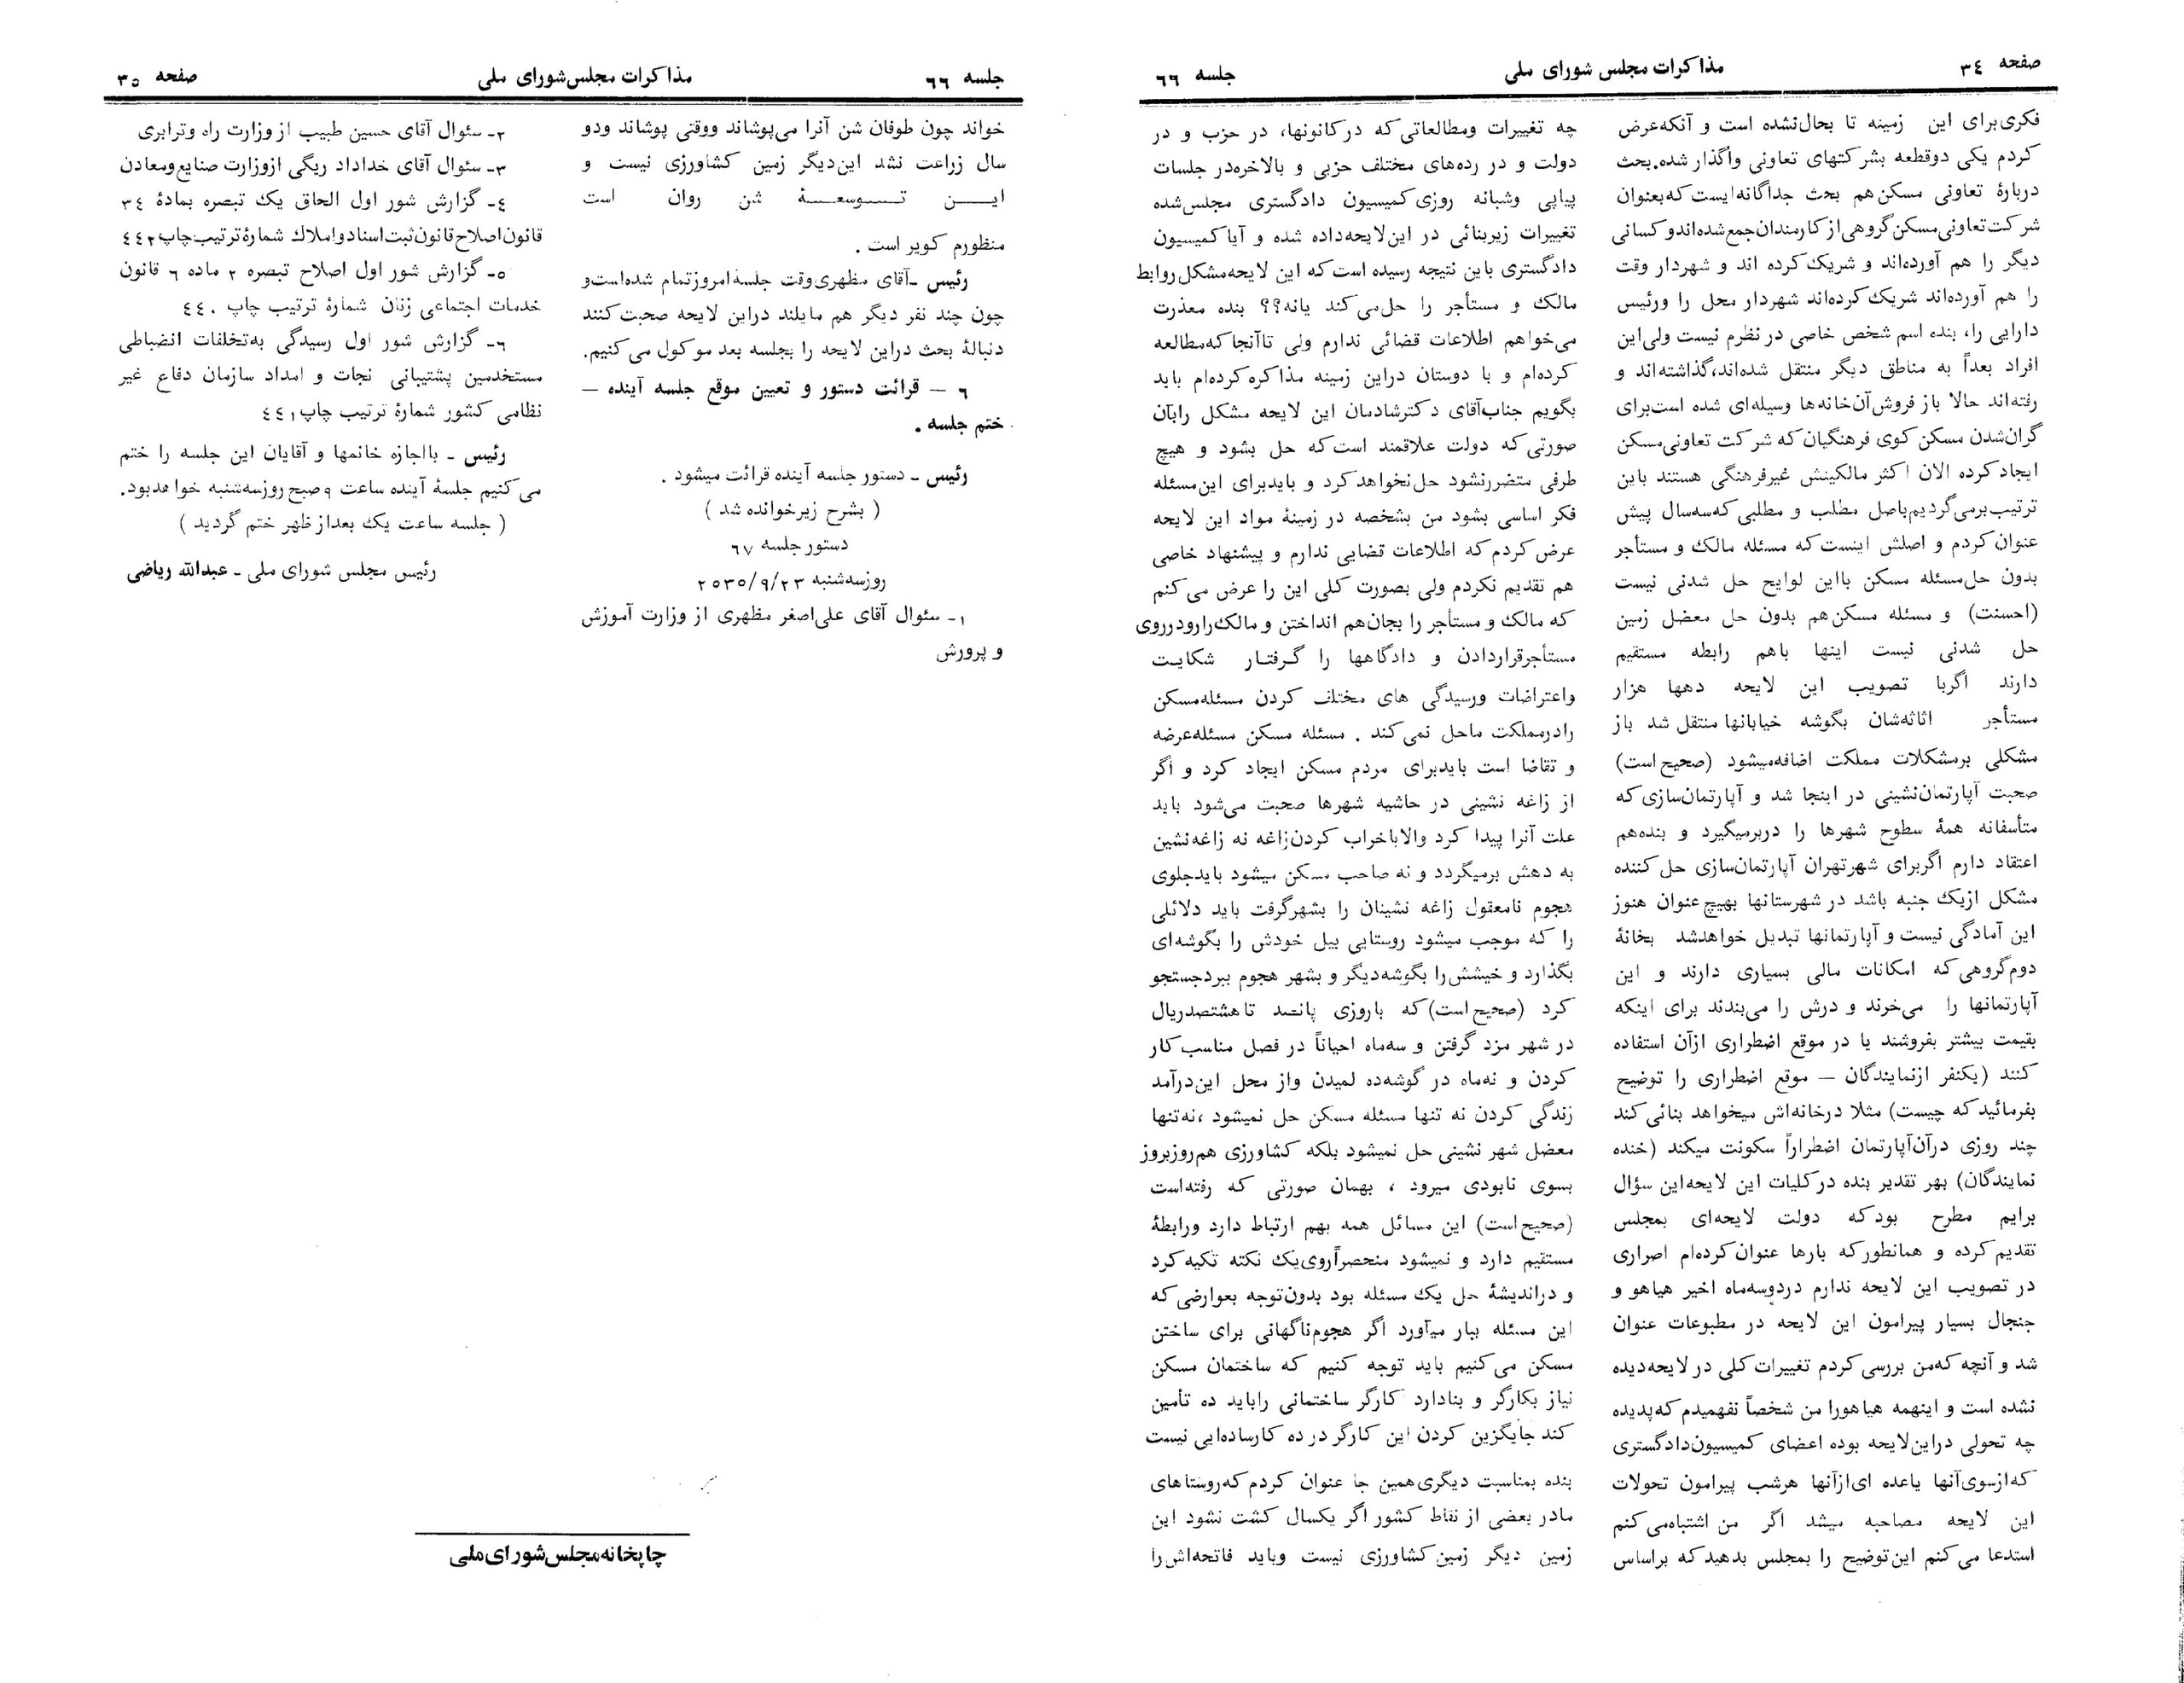 صفحه ٣٤
مذاکرات مجلس شورای ملی
جلسه ٦٦
فکری‌برای این زمینه تا بحال‌نشده است و آنکه‌عرض
کردم یکی دوقطعه بشرکتهای تعاونی واگذار شده.بحث
دربارهٔ تعاونی مسکن‌هم بحث جداگانه‌ایست که‌بعنوان
شرکت‌تعاونی‌مسکن‌گروهی‌ازکارمندان‌جمع‌شده‌اندو کسانی
دیگر را هم آورده‌اند و شریک‌کرده اند و شهردار وقت
را هم آورده‌اند شریک‌کرده‌اند شهردار محل را ورئیس
دارایی را، بنده اسم شخص خاصی در نظرم نیست ولی‌این
افراد بعداً به مناطق دیگر منتقل شده‌اند،گذاشته‌اند و
رفته‌اند حالا باز فروش‌آن‌خانه‌ها وسیله‌ای شده است‌برای
گران‌شدن مسکن کوی فرهنگیان که شرکت تعاونی‌مسکن
ایجادکرده الان اکثر مالکینش غیرفرهنگی هستند باین
ترتیب‌برمی‌گردیم‌باصل مطلب و مطلبی که‌سه‌سال پیش
عنوان‌کردم و اصلش اینست‌که مسئله مالک و مستأجر
بدون حل‌مسئله مسکن بااین لوایح حل شدنی نیست
(احسنت) و مسئله مسکن‌هم بدون حل معضل زمین
حل شدنی نیست اینها باهم رابطه مستقیم
دارند اگربا تصویب این لایحه دهها هزار
مستأجر اثاثه‌شان بگوشه خیابانها منتقل شد باز
مشکلی برمشکلات مملکت اضافه‌میشود (صحیح است)
صحبت آپارتمان‌نشینی در اینجا شد و آپارتمان‌سازی‌که
متأسفانه همهٔ سطوح شهرها را دربرمیگیرد و بنده‌هم
اعتقاد دارم اگربرای شهرتهران آپارتمان‌سازی حل‌کننده
مشکل ازیک جنبه باشد در شهرستانها بهیچ عنوان هنوز
این آمادگی نیست و آپارتمانها تبدیل خواهدشد بخانهٔ
دوم‌گروهی‌که امکانات مالی بسیاری دارند و این
آپارتمانها را می‌خرند و درش را می‌بندند برای اینکه
بقیمت بیشتر بفروشند یا در موقع اضطراری ازآن استفاده
کنند (یکنفر ازنمایندگان – موقع اضطراری را توضیح
بفرمائیدکه چیست) مثلا درخانه‌اش میخواهد بنائی‌کند
چند روزی درآن‌آپارتمان اضطراراً سکونت میکند (خنده
نمایندگان) بهر تقدیر بنده درکلیات این لایحه‌این سؤال
برایم مطرح بودکه دولت لایحه‌ای بمجلس
تقدیم‌کرده و همانطورکه بارها عنوان‌کرده‌ام اصراری
در تصویب این لایحه ندارم دردوسه‌ماه اخیر هیاهو و
جنجال بسیار پیرامون این لایحه در مطبوعات عنوان
شد و آنچه که‌من بررسی‌کردم تغییرات‌کلی در لایحه‌دیده
نشده است و اینهمه هیاهورا من شخصاً نفهمیدم که‌پدیده
چه تحولی دراین‌لایحه بوده اعضای کمیسیون‌دادگستری
که‌ازسوی‌آنها یاعده ای‌ازآنها هرشب پیرامون تحولات
این لایحه مصاحبه میشد اگر من اشتباه‌می‌کنم
استدعا می‌کنم این‌توضیح را بمجلس بدهیدکه براساس
چه تغییرات ومطالعاتی‌که درکانونها، در حزب و در
دولت و در رده‌های مختلف حزبی و بالاخره‌در جلسات
پیاپی وشبانه روزی‌کمیسیون دادگستری مجلس‌شده
تغییرات زیربنائی در این‌لایحه‌داده شده و آیاکمیسیون
دادگستری باین نتیجه رسیده است‌که این لایحه‌مشکل‌روابط
مالک و مستأجر را حل‌می‌کند یانه؟؟ بنده معذرت
می‌خواهم اطلاعات قضائی ندارم ولی تاآنجاکه‌مطالعه
کرده‌ام و با دوستان دراین زمینه مذاکره‌کرده‌ام باید
بگویم جناب‌آقای دکترشادمان این لایحه مشکل رابآن
صورتی‌که دولت علاقمند است‌که حل بشود و هیچ
طرفی متضررنشود حل‌نخواهدکرد و بایدبرای این‌مسئله
فکر اساسی بشود من بشخصه در زمینهٔ مواد این لایحه
عرض‌کردم که اطلاعات قضایی ندارم و پیشنهاد خاصی
هم تقدیم نکردم ولی بصورت کلی این را عرض می‌کنم
که مالک و مستأجر را بجان‌هم انداختن و مالک‌رارودرروی
مستأجرقراردادن و دادگاهها را گرفتار شکایت
واعتراضات ورسیدگی های مختلف کردن مسئله‌مسکن
رادرمملکت ماحل نمی‌کند . مسئله مسکن مسئله‌عرضه
و تقاضا است بایدبرای مردم مسکن ایجاد کرد و اگر
از زاغه نشینی در حاشیه شهرها صحبت می‌شود باید
علت آنرا پیدا کرد والاباخراب کردن‌زاغه نه زاغه‌نشین
به دهش برمیگردد و نه صاحب مسکن میشود بایدجلوی
هجوم نامعقول زاغه نشینان را بشهرگرفت باید دلائلی
را که موجب میشود روستایی بیل خودش را بگوشه‌ای
بگذارد و خیشش‌را بگوشه‌دیگر و بشهر هجوم ببردجستجو
کرد (صحیح است)که باروزی پانصد تاهشتصدریال
در شهر مزد گرفتن و سه‌ماه احیاناً در فصل مناسب‌کار
کردن و نه‌ماه در گوشه‌ده لمیدن واز محل این‌درآمد
زندگی کردن نه تنها مسئله مسکن حل نمیشود ،نه‌تنها
معضل شهر نشینی حل نمیشود بلکه کشاورزی هم‌روزبروز
بسوی نابودی میرود ، بهمان صورتی که رفته‌است
(صحیح‌است) این مسائل همه بهم ارتباط دارد ورابطهٔ
مستقیم دارد و نمیشود منحصراًروی‌یک نکته تکیه‌کرد
و دراندیشهٔ حل یک مسئله بود بدون‌توجه بعوارضی‌که
این مسئله ببار میآورد اگر هجوم‌ناگهانی برای ساختن
مسکن می‌کنیم باید توجه کنیم که ساختمان مسکن
نیاز بکارگر و بنادارد کارگر ساختمانی راباید ده تأمین
کند جایگزین کردن این کارگر درده کارساده‌ایی نیست
بنده بمناسبت دیگری‌همین جا عنوان کردم که‌روستاهای
مادر بعضی از نقاط کشور اگر یکسال کشت نشود این
زمین دیگر زمین‌کشاورزی نیست وباید فاتحه‌اش‌را
جلسه ٦٦
مذاکرات مجلس‌شورای ملی
صفحه ٣٥
خواند چون طوفان شن آنرا می‌پوشاند ووقتی پوشاند ودو
سال زراعت نشد این‌دیگر زمین کشاورزی نیست و
ایــن تــوسعــهٔ شن روان است
منظورم کویر است .
رئیس ـآقای مظهری‌وقت جلسهٔ‌امروزتمام شده‌است‌و
چون چند نفر دیگر هم مایلند دراین لایحه صحبت‌کنند
دنبالهٔ بحث دراین لایحه را بجلسه بعد موکول می‌کنیم.
٦ – قرائت دستور و تعیین موقع جلسه آینده –
ختم جلسه .
رئیس ـ دستور جلسه آینده قرائت میشود .
( بشرح زیرخوانده شد )
دستور جلسه ٦٧
روزسه‌شنبه ٢٥٣٥/٩/٢٣
١ـ سئوال آقای علی‌اصغر مظهری از وزارت آموزش
و پرورش
٢ـ سئوال آقای حسین طبیب ازوزارت راه وترابری
٣ـ سئوال آقای خداداد ریگی ازوزارت صنایع‌ومعادن
٤ـ گزارش شور اول الحاق یک تبصره بمادهٔ ٣٤
قانون‌اصلاح‌قانون‌ثبت‌اسنادواملاک شمارهٔ‌ترتیب‌چاپ٤٤٢
٥ـ گزارش شور اول اصلاح تبصره ٢ ماده ٦ قانون
خدمات اجتماعی زنان شمارهٔ ترتیب چاپ ٤٤٠
٦ـ گزارش شور اول رسیدگی به‌تخلفات انضباطی
مستخدمین پشتیبانی نجات و امداد سازمان دفاع غیر
نظامی کشور شمارهٔ ترتیب چاپ٤٤١
رئیس ـ بااجازه خانمها و آقایان این جلسه را ختم
می‌کنیم جلسهٔ آینده ساعت ٩صبح روزسه‌شنبه خواهدبود.
( جلسه ساعت یک بعداز ظهر ختم گردید )
رئیس مجلس شورای ملی ـ عبدالله ریاضی
چاپخانه‌مجلس‌شورای‌ملی